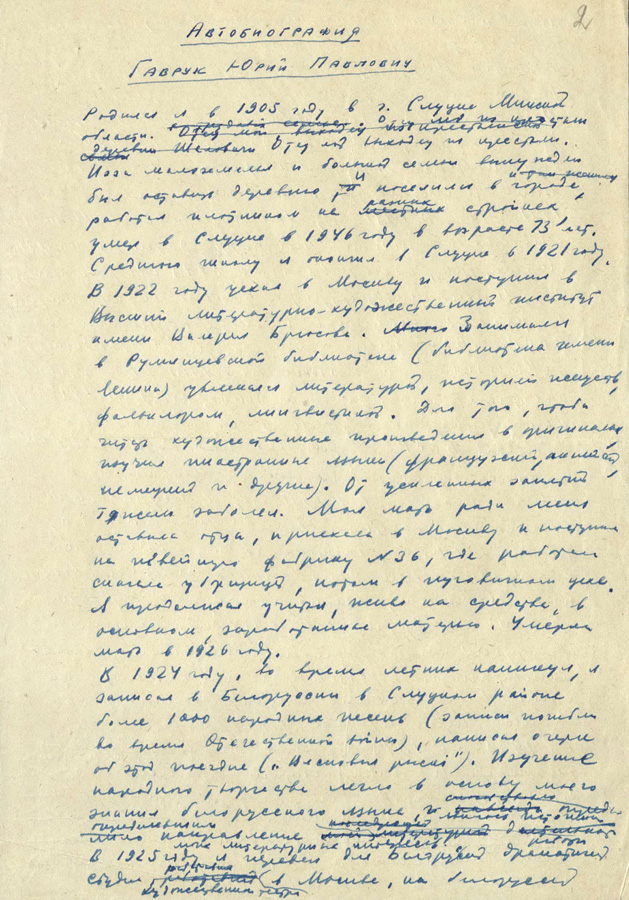 2
Автобиография
Гаврук Юрий Павлович
Родился я в 1905 году в г. Слуцке Минской
области. Отец мой, выходец из крестьян
деревни Отец мой выходец из крестьян.
Из-за малоземелья и большой семьи вынужден
был оставить деревню и поселился в городе,
работал плотником на разных стройках,
умер в Слуцке в 1946 году в возрасте 73 лет.
Среднюю школу я окончил в Слуцке в 1921 году.
В 1922 году уехал в Москву и поступил в
Высший литературно-художественный институт
имени Валерия Брюсова. Много Занимался
в Румянцевской библиотеке (библиотека имени
Ленина) увлекался литературой, историей искусств,
фольклором, лингвистикой. Для того, чтобы
читать художественные произведения в оригинале,
изучал иностранные языки (французский, английский,
немецкий и другие). От усиленных занятий
тяжело заболел. Моя мать ради меня
оставила отца, приехала в Москву и поступила
на швейную фабрику №36, где работала
сначала уборщицей, потом в пуговичном цехе.
Я продолжал учиться, живя на средства, в
основном, заработанные матерью. Умерла
мать в 1926 году.
В 1924 году, во время летних каникул, я
записал в Белоруссии в Слуцком районе
более 1000 народных песень (записи погибли
во время Отечественной войны), написал очерк
об этой поездке („Вясновыя рыскі"). Изучение
народного творчества легло в основу моего
знания белорусского языка, и
направление
моих литературных интересов.
В 1925 году я перевел для Белорусской драматической
студии в Москве, на белорусский
художественный театра